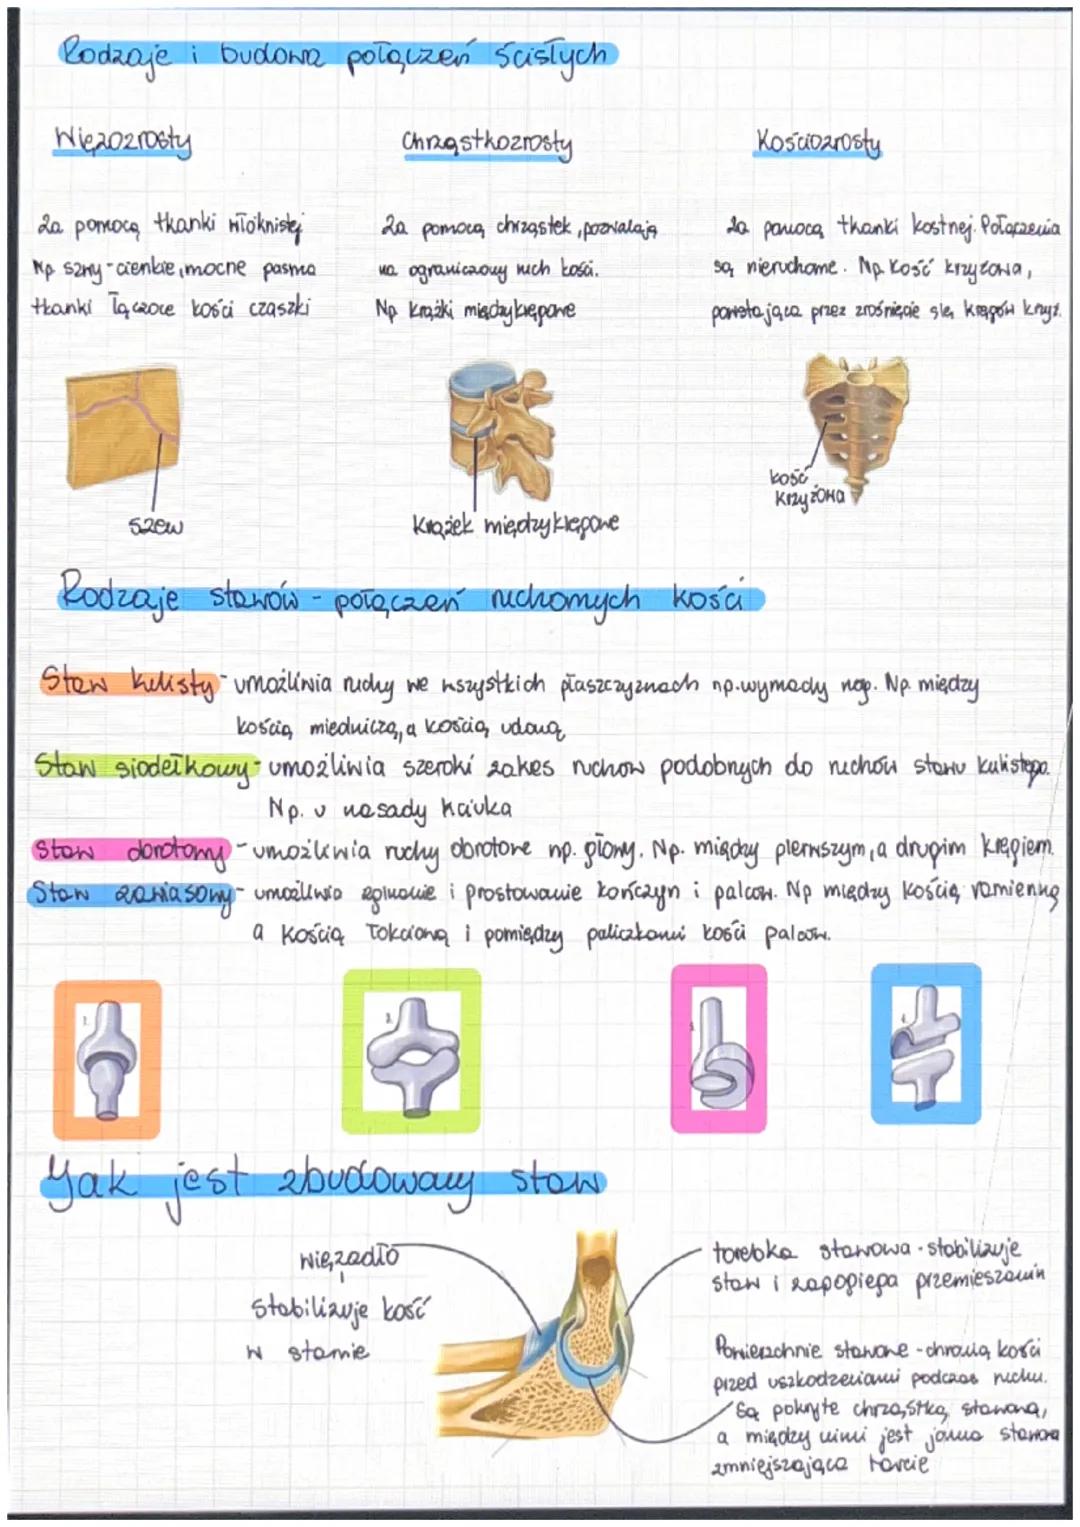 Rodzaje i budowa połączeń ścisłych
Więzozrosty
Chrząstkozrosty
Kościozrosty
Za pomocą tkanki włóknistej
Np szwy - cienkie, mocne pasma
tkanki łączące kości czaszki
Za pomocą chrząstek, pozwalają
na ograniczony ruch kości.
Np krążki międzykręgowe
Za pomocą tkanki kostnej. Połączenia
są nieruchome. Np. Kość krzyżowa,
powstająca przez zrośnięcie się kręgów krzyż.
szew
Krążek międzykręgowe
kość
krzyżowa
Rodzaje stawów - połączeń ruchomych kości
Staw kulisty - umożliwia ruchy we wszystkich płaszczyznach np. wymachy nóg. Np. między
kością miedniczą, a kością udową
Staw siodełkowy - umożliwia szeroki zakes ruchów podobnych do ruchów stawu kulistego.
Np. u nasady kciuka
Staw obrotowy - umożliwia ruchy obrotowe np. głowy. Np. między pierwszym, a drugim kręgiem.
Staw zawiasowy - umożliwia zginanie i prostowanie kończyn i palców. Np między kością ramienną
a kością łokciową i pomiędzy paliczkami kości palców.
1.
2.
3.
4.
Jak jest zbudowany staw
więzadło
stabilizuje kość
w stawie
torebka stawowa - stabilizuje
staw i zapobiega przemieszczaniu
Powierzchnie stawowe - chronią kości
przed uszkodzeniami podczas ruchu.
Są pokryte chrząstką stawową,
a między nimi jest jama stawowa
zmniejszająca tarcie